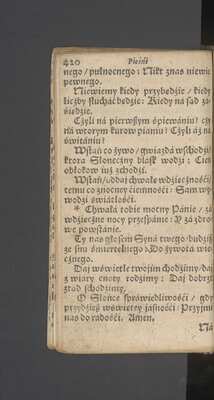 420 Pieśni
nego / pulnocnego : Nikt znas niewie
pewnego.
Niewiemy kiedy przybędzie / kiedy
liczby słuchać będzie : Kiedy na sąd za-
siędzie.
Czyli na pierwszym śpiewaniu / czy
na wtorym kurow pianiu ? Czyli áż ná
świtániu ?
Wstań co żywo / gwiazdá wschodzi /
ktora Słoneczny blásk wodzi : Cien
obłokow iuż zchodźi.
Wstań / oddaj chwałę wdzięcznośći /
temu co znocney ciemnośći : Sam wy-
wodzi światłośći.
* Chwałá tobie mocny Pánie / zá
wdzięczne nocy przespánie : Y zá zdro-
we powstánie.
Ty nas głosem Syná twego / budziß
ze snu śmiertelnego : Do żywotá wie-
cznego.
Daj wświetle twojim chodzimy / daj
z wiáry cnoty rodzimy : Daj dobrze
ztąd schodzimy.
O Słońce spráwiedliwośći / gdy
przydzieß wświętey jásnośći : Przyjmi
nas do rádośći. Amen.